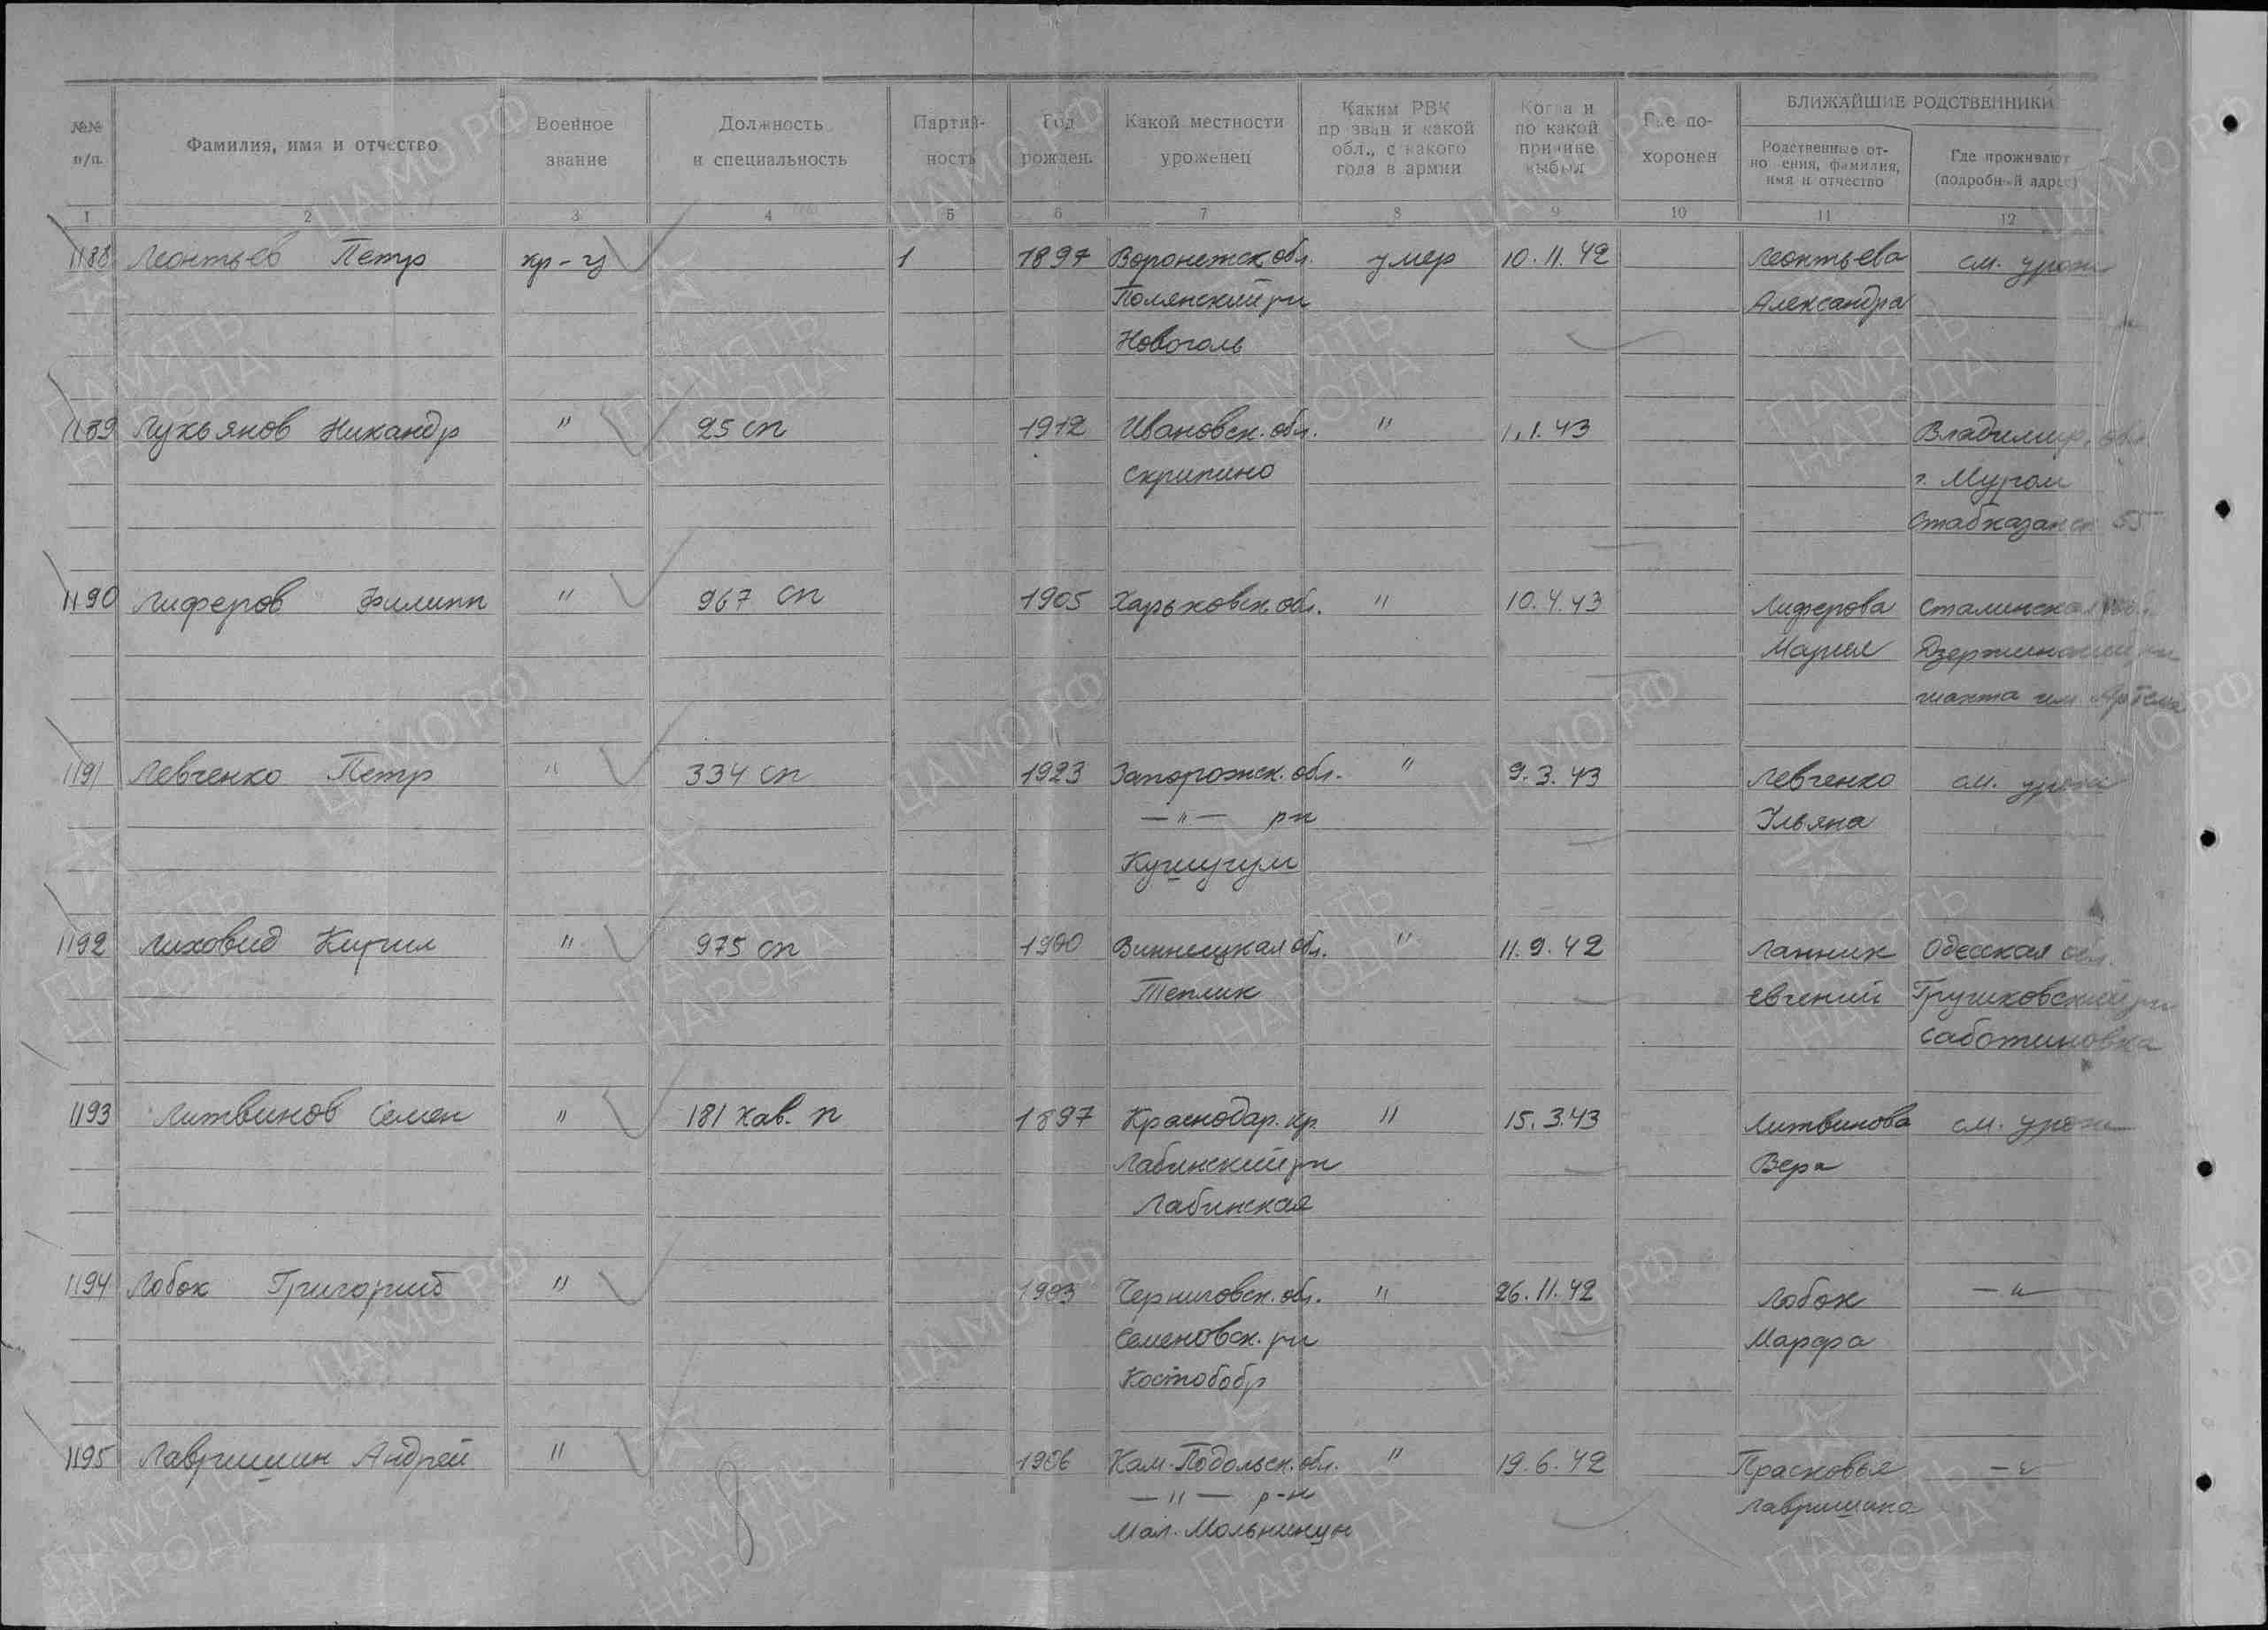 №№ п/п.
Фамилия, имя и отчество
Военное звание
Должность и специальность
Партийность
Год рожден.
Какой местности уроженец
Каким РВК призван и какой обл., с какого года в армии
Когда и по какой причине выбыл
Где похоронен
БЛИЖАЙШИЕ РОДСТВЕННИКИ
Родственные отношения, фамилия, имя и отчество
Где проживают (подробный адрес)
1 2 3 4 5 6 7 8 9 10 11 12
1188 Леонтьев Петр кр-ц 1 1897 Воронежск обл. умер 10.11.42 Леонтьева см. урож
Полянский рн Александра
Новоголь
1189 Лукьянов Никандр " 25 сп 1912 Ивановск. обл. " 1.1.43 Владимир. обл.
Скрипино г. Муром
55
1190 Лиферов Филипп " 967 сп 1905 Харьковск. обл. " 10.4.43 Лиферова Сталинская обл.
Мария Дзержинский рн
шахта им Артема
1191 Левченко Петр " 334 сп 1923 Запорожск. обл. " 9.3.43 Левченко см. урож
—"— рн Ульяна
Кушугум
1192 Лиховид Кирил " 975 сп 1900 Винницкая обл. " 11.9.42 Ланник Одесская обл.
Теплик Евгений Грушковский рн
Саботиновка
1193 Литвинов Семен " 181 кав. п 1897 Краснодар. кр. " 15.3.43 Литвинова см. урож
Лабинский рн Вера
Лабинская
1194 Лобок Григорий " 1903 Черниговск. обл. " 26.11.42 Лобок —"—
Семеновск. рн Марфа
Костобобр
1195 Лавришин Андрей " 1906 Кам-Подольск. обл. " 19.6.42 Прасковья —"—
—"— р-н Лавришина
Мал.
8
ЦАМО РФ
ПАМЯТЬ НАРОДА